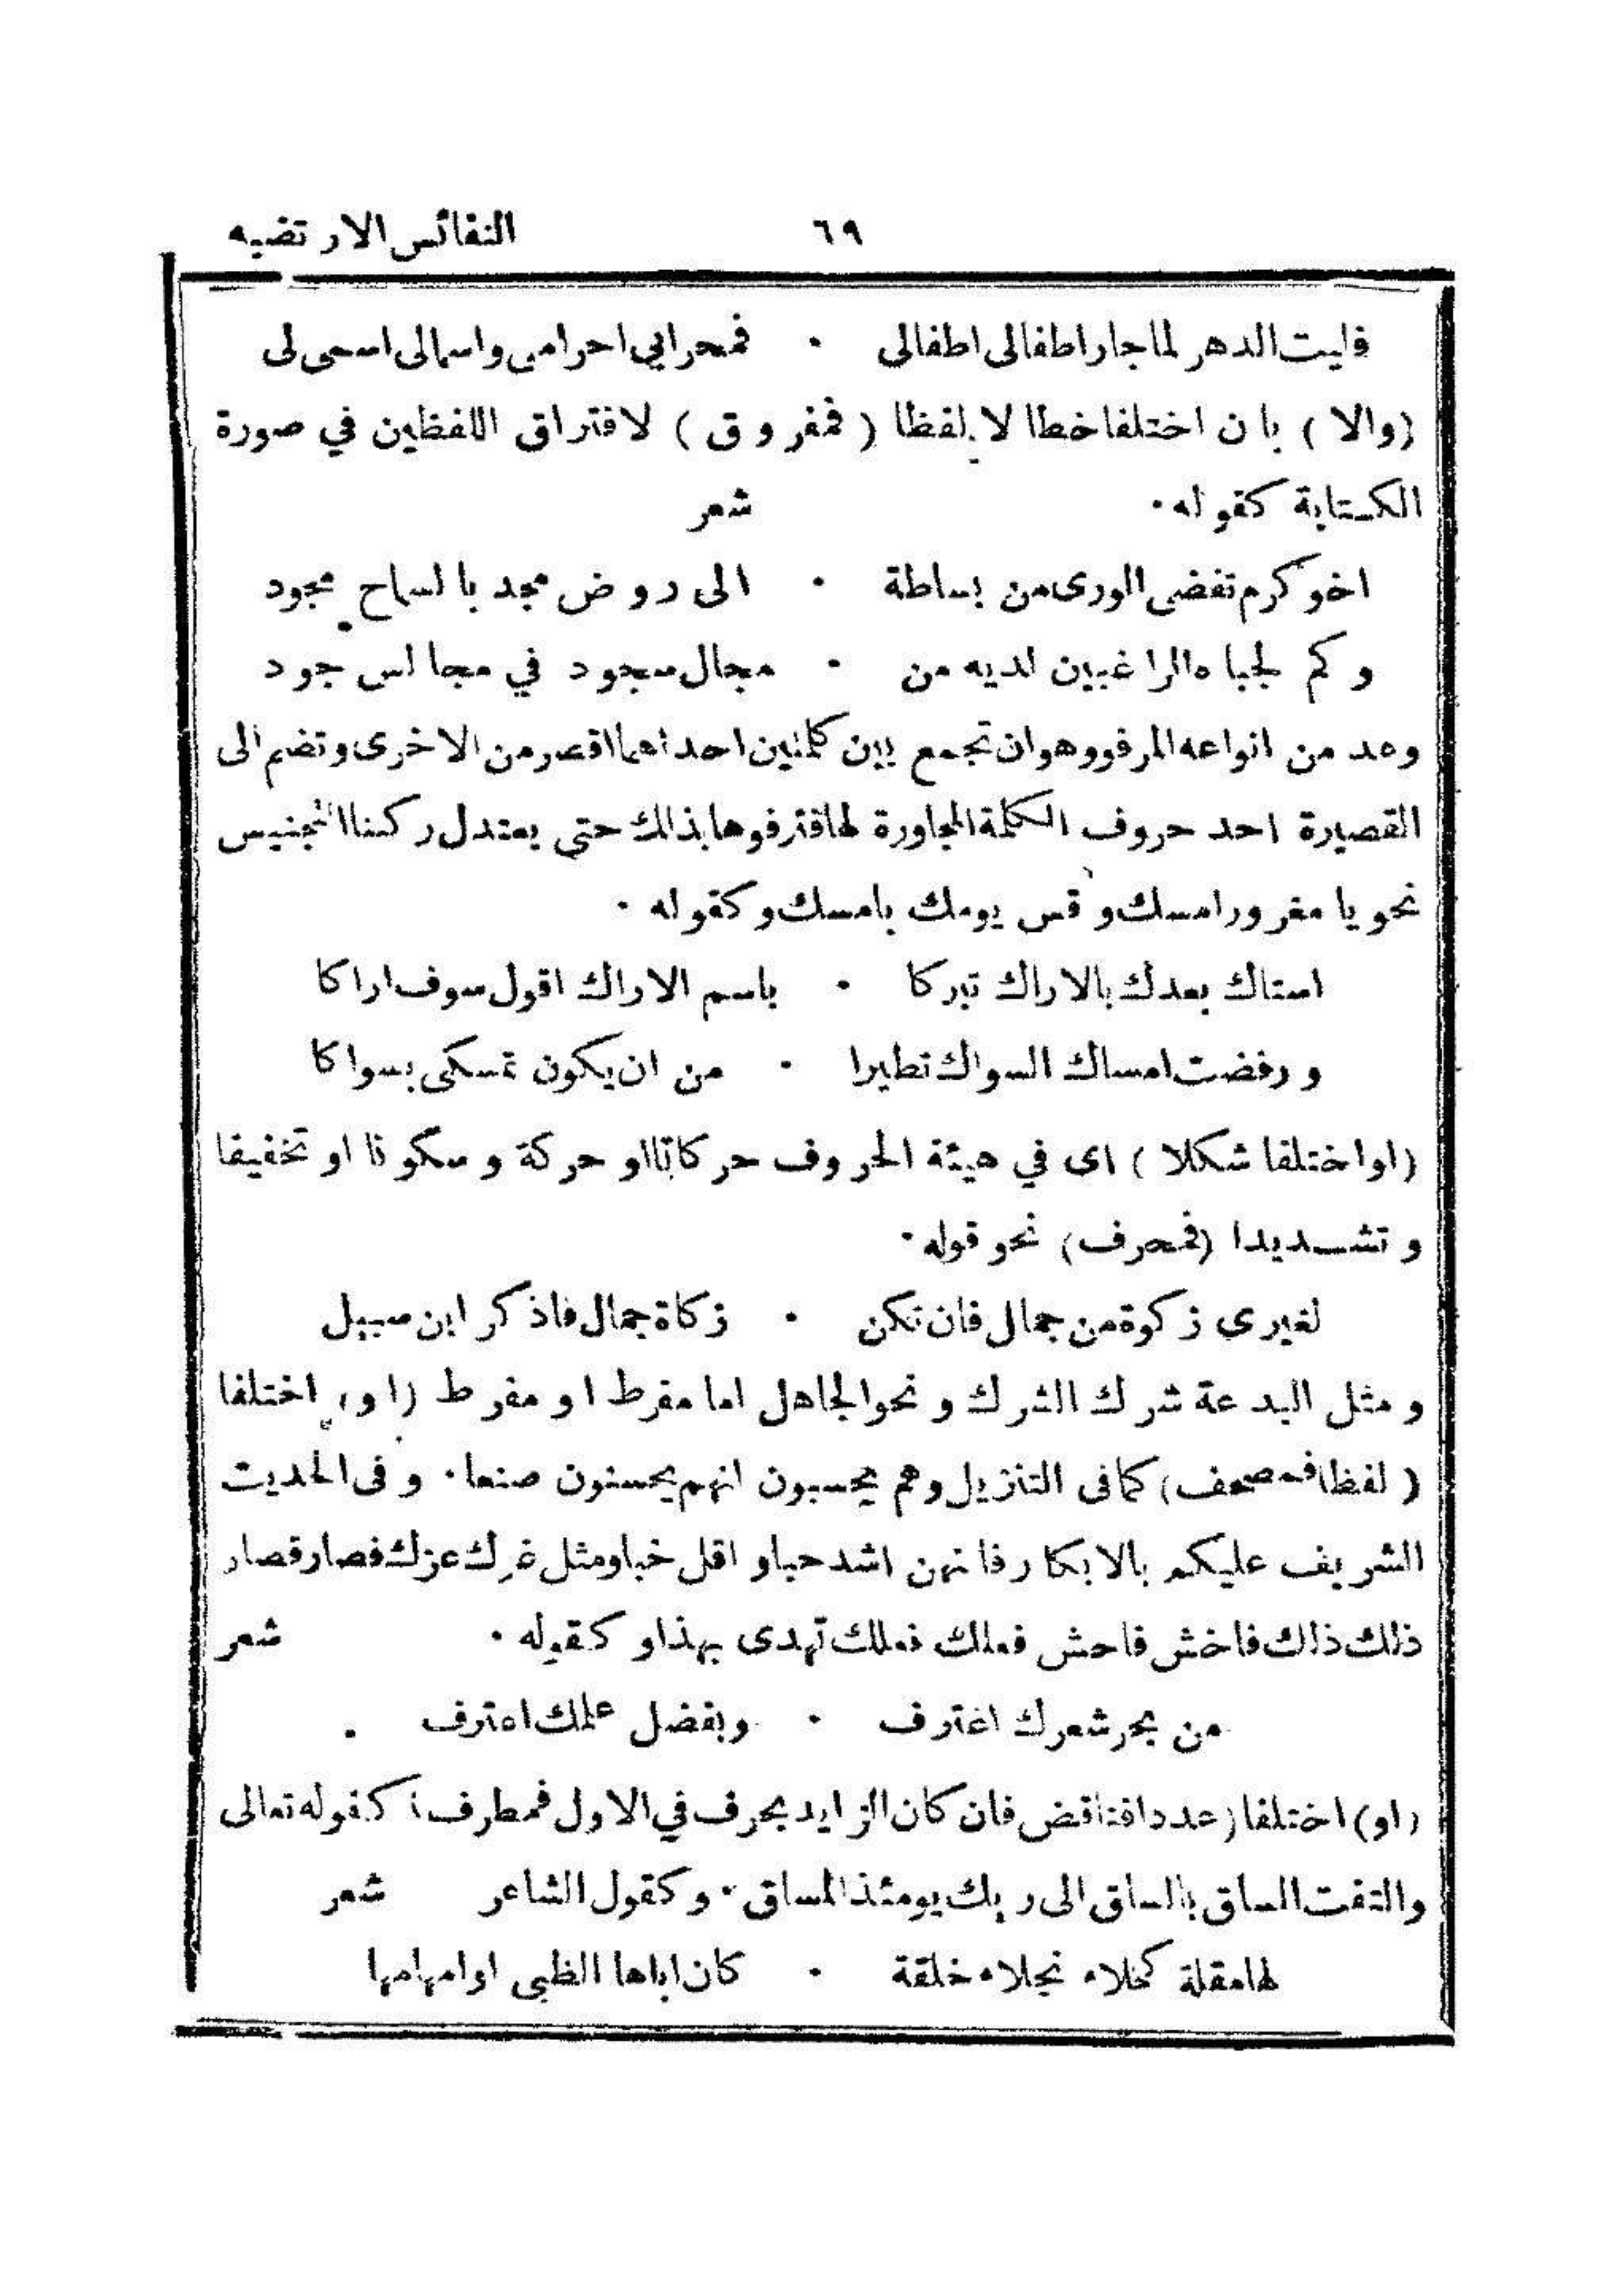 ٦٩ النفائس الارتضيه
فليت الدهر لما جار اطفالى اطفالى ٠ فمحرابي احرامى واسمالى اسمى لى
(والا) بان اختلفا خطا لا لفظا (فمفروق) لافتراق اللفظين في صورة
الكتابة كقوله٠ شعر
اخو كرم تفضى الورى من بساطة ٠ الى روض مجد بالسماح مجود
وكم لجباه الراغبين لديه من ٠ مجال سجود في مجالس جود
وعد من انواعه المرفو وهو ان تجمع بين كلمتين احداهما اقصر من الاخرى وتضم الى
القصيرة احد حروف الكلمة المجاورة لها فترفوها بذالك حتى يعتدل ركنا التجنيس
نحو يا مغرور امسك وقس يومك بامسك وكقوله ٠
استاك بعدك بالاراك تبركا ٠ باسم الاراك اقول سوف اراكا
ورفضت امساك السواك تطيرا ٠ من ان يكون تمسكى بسواكا
(او اختلفا شكلا) اى في هيئة الحروف حركاتا او حركة وسكونا او تخفيفا
وتشديدا (فمحرف) نحو قوله٠
لغيري زكوة من جمال فان تكن ٠ زكاة جمال فاذكر ابن سبيل
ومثل البدعة شرك الشرك ونحو الجاهل اما مفرط او مفرط (او) اختلفا
(لفظا فمصحف) كما فى التنزيل وهم يحسبون انهم يحسنون صنعا٠ وفى الحديت
الشريف عليكم بالابكار فانهن اشد حبا و اقل خبا ومثل غرك عزك فصار قصار
ذلك ذلك فاخش فاحش فعلك فعلك تهدى بهذا و كقوله ٠ شعر
من بحر شعرك اغترف ٠ وبفضل علمك اعترف ٠
(او) اختلفا (عددا فناقض فان كان الزايد بحرف في الاول فمطرف) كقوله تعالى
والتفت الساق بالساق الى ربك يومئذ المساق٠ وكقول الشاعر شعر
لها مقلة كحلاء نجلاء خلقة ٠ كان اباها الظبى او امها مها